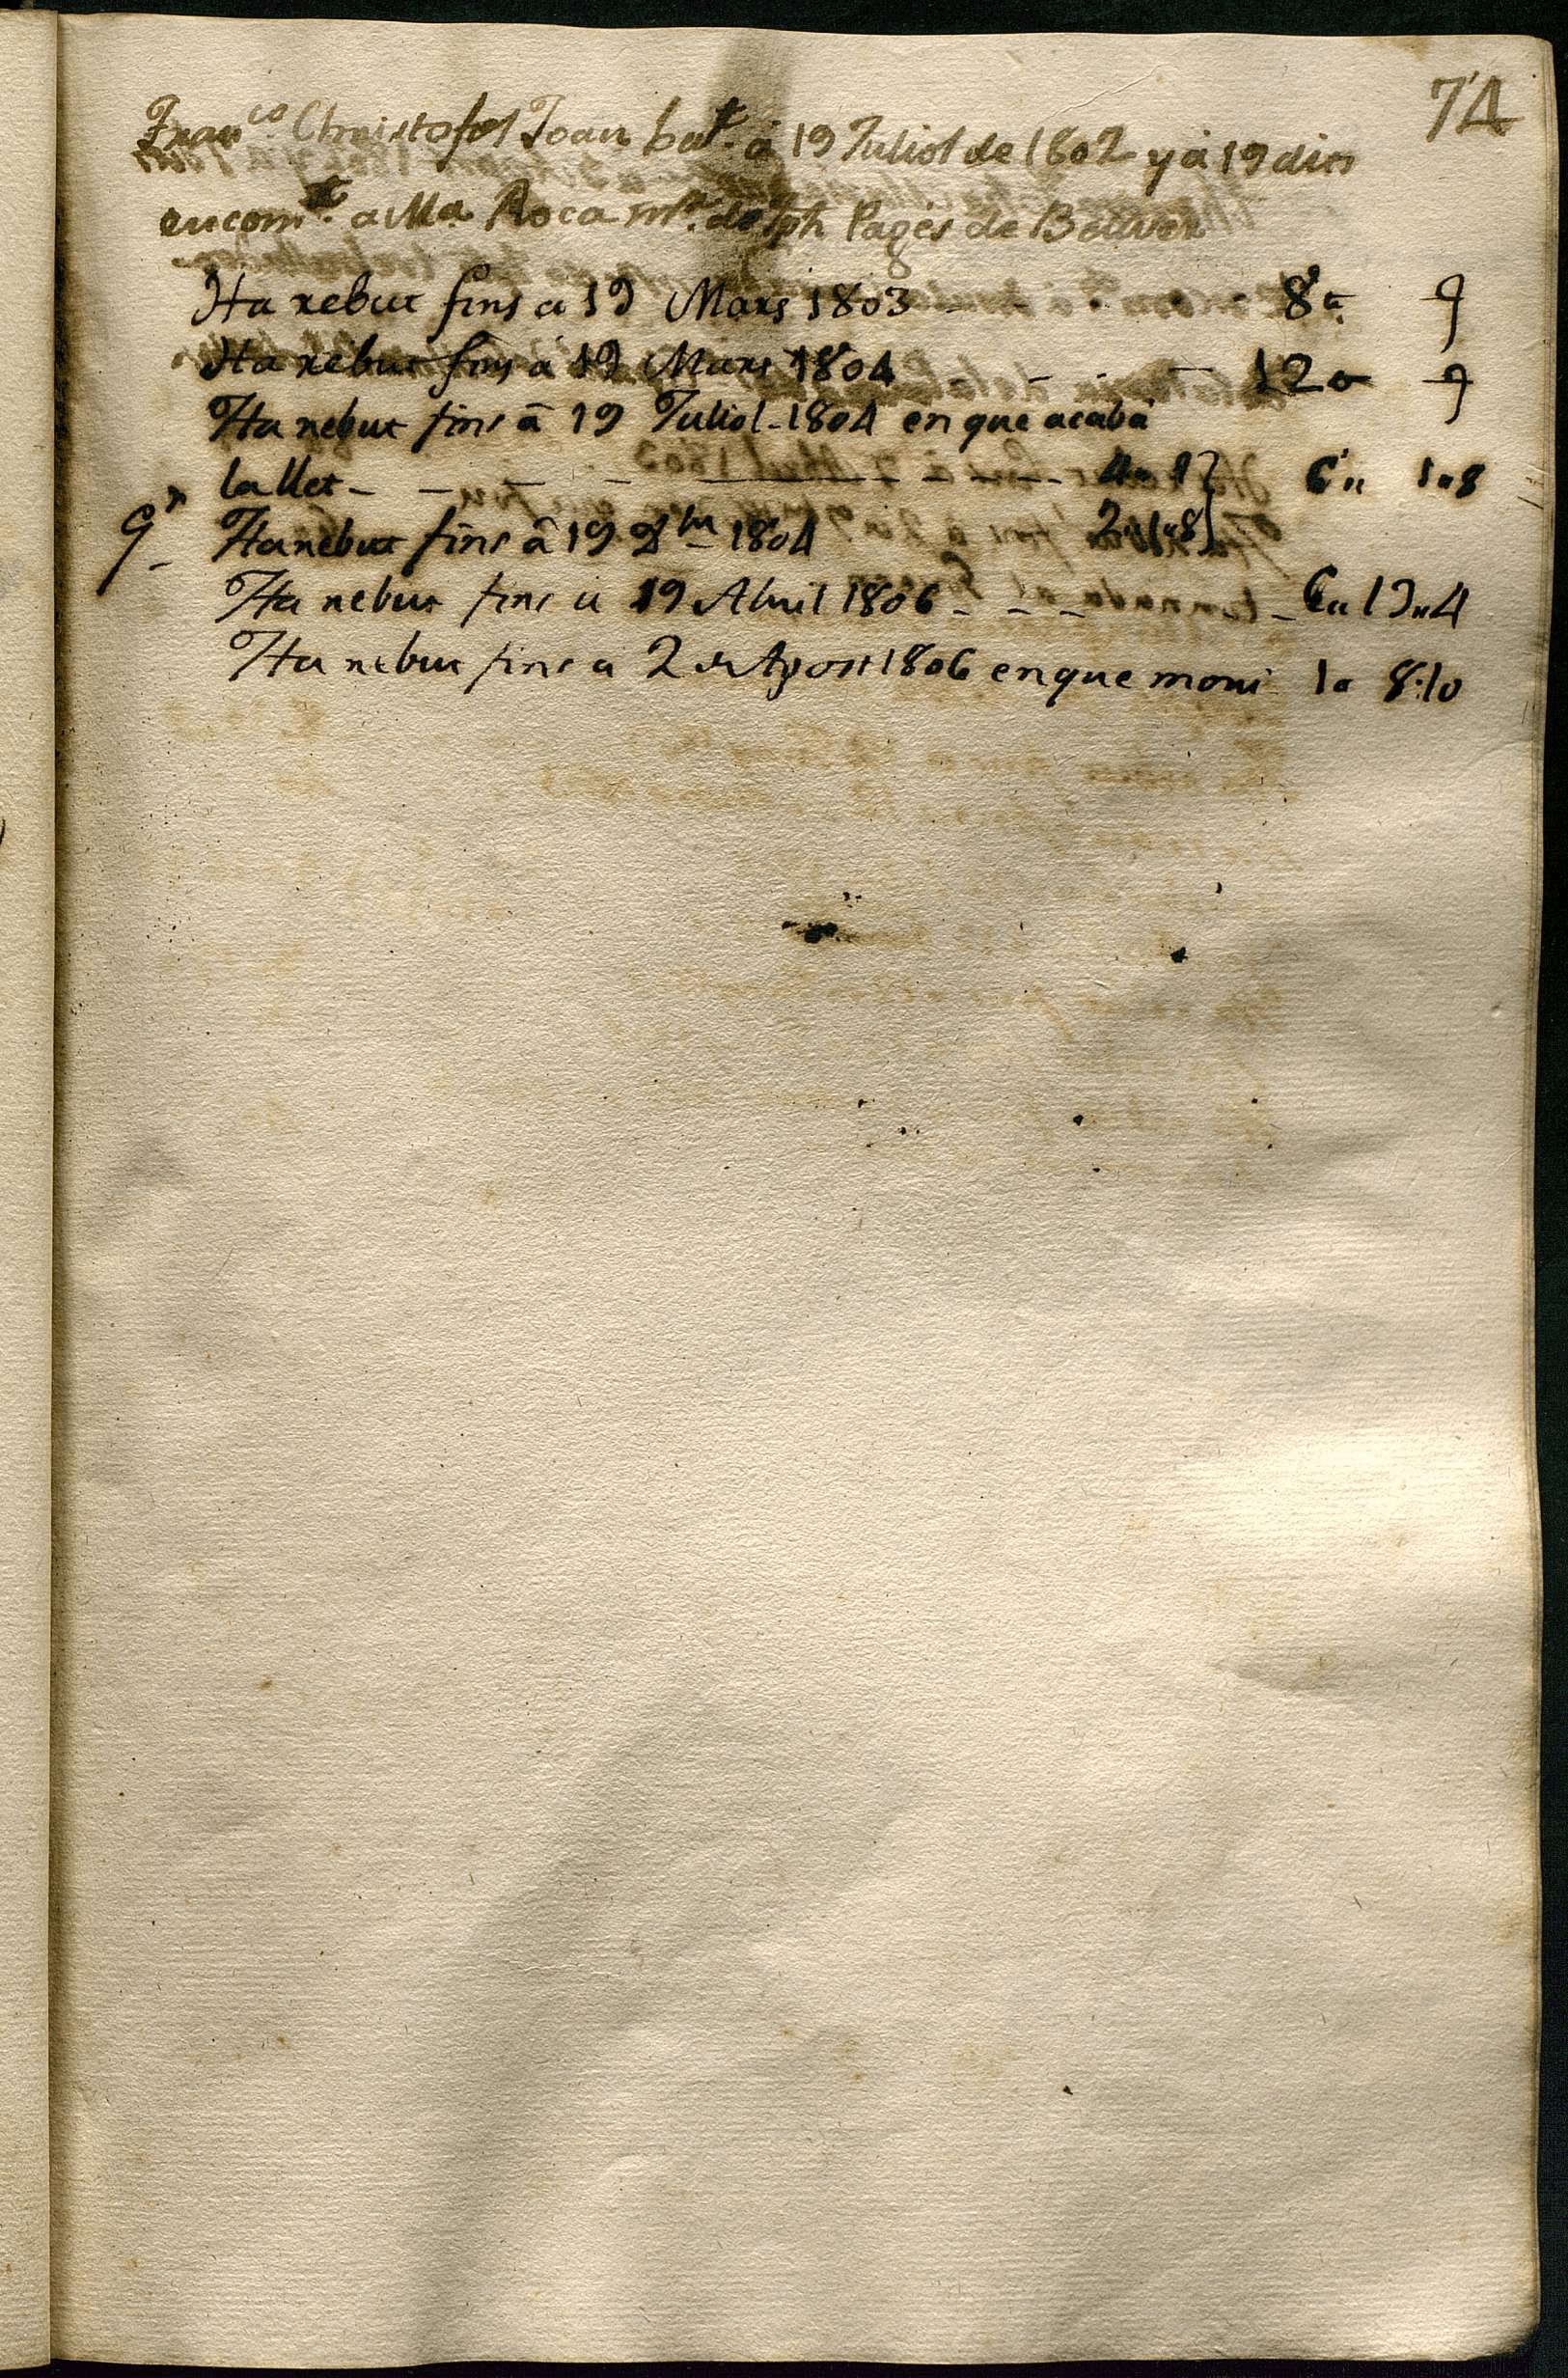 74
Franco. Christofol Joan bat. á 19 Juliol de 1802 y á 19 dits
encomt. a Ma. Roca mr. de Jph Pagés de Bellver
Ha rebut fins a 19 Mars 1803 - 8"
Ha rebut fins á 19 Mars 1804 - - - 12"
Ha rebut fins á 19 Juliol 1804 en que acabá
la llet - - - - 4" 6" 1"8
Ha rebut fins á 19 1804 2"1"8
Ha rebut fins á 19 Abril 1806 - - - - 6" 19"4
Ha rebut fins a 2 de Agost 1806 en que morí 1" 8"10